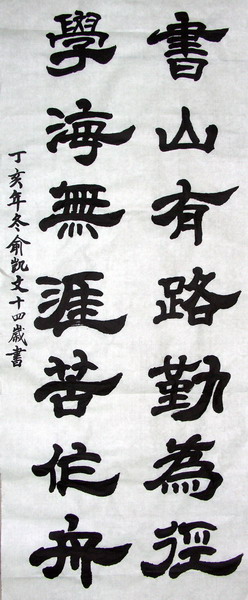 書山有路勤為徑
學海無涯苦作舟
丁亥年冬俞凱文十四歲書